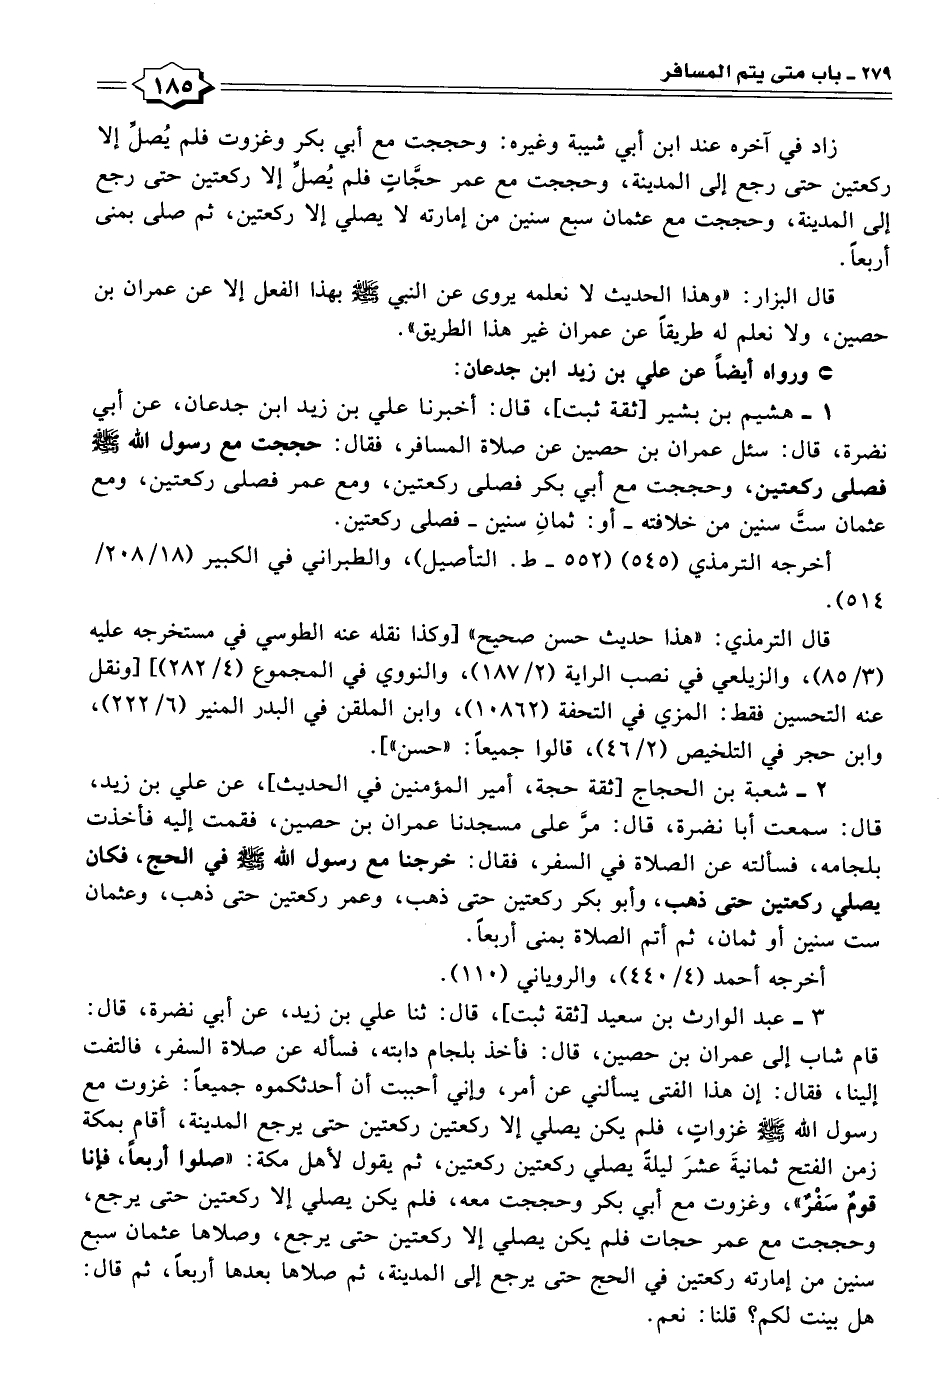 ٢٧٩ - باب متى يتم المسافر
١٨٥
زاد في آخره عند ابن أبي شيبة وغيره: وحججت مع أبي بكر وغزوت فلم يُصلِّ إلا
ركعتين حتى رجع إلى المدينة، وحججت مع عمر حجَّاتٍ فلم يُصلِّ إلا ركعتين حتى رجع
إلى المدينة، وحججت مع عثمان سبع سنين من إمارته لا يصلي إلا ركعتين، ثم صلى بمنى
أربعاً.
قال البزار: «وهذا الحديث لا نعلمه يروى عن النبي ﷺ بهذا الفعل إلا عن عمران بن
حصين، ولا نعلم له طريقاً عن عمران غير هذا الطريق».
⊂ ورواه أيضاً عن علي بن زيد ابن جدعان:
١ - هشيم بن بشير [ثقة ثبت]، قال: أخبرنا علي بن زيد ابن جدعان، عن أبي
نضرة، قال: سئل عمران بن حصين عن صلاة المسافر، فقال: حججت مع رسول الله ﷺ
فصلى ركعتين، وحججت مع أبي بكر فصلى ركعتين، ومع عمر فصلى ركعتين، ومع
عثمان ستَّ سنين من خلافته - أو: ثمانِ سنين - فصلى ركعتين.
أخرجه الترمذي (٥٤٥) (٥٥٢ - ط. التأصيل)، والطبراني في الكبير (١٨/ ٢٠٨/
٥١٤).
قال الترمذي: «هذا حديث حسن صحيح» [وكذا نقله عنه الطوسي في مستخرجه عليه
(٣/ ٨٥)، والزيلعي في نصب الراية (٢/ ١٨٧)، والنووي في المجموع (٤/ ٢٨٢)] [ونقل
عنه التحسين فقط: المزي في التحفة (١٠٨٦٢)، وابن الملقن في البدر المنير (٦/ ٢٢٢)،
وابن حجر في التلخيص (٢/ ٤٦)، قالوا جميعاً: «حسن»].
٢ - شعبة بن الحجاج [ثقة حجة، أمير المؤمنين في الحديث]، عن علي بن زيد،
قال: سمعت أبا نضرة، قال: مرَّ على مسجدنا عمران بن حصين، فقمت إليه فأخذت
بلجامه، فسألته عن الصلاة في السفر، فقال: خرجنا مع رسول الله ﷺ في الحج، فكان
يصلي ركعتين حتى ذهب، وأبو بكر ركعتين حتى ذهب، وعمر ركعتين حتى ذهب، وعثمان
ست سنين أو ثمان، ثم أتم الصلاة بمنى أربعاً.
أخرجه أحمد (٤/ ٤٤٠)، والروياني (١١٠).
٣ - عبد الوارث بن سعيد [ثقة ثبت]، قال: ثنا علي بن زيد، عن أبي نضرة، قال:
قام شاب إلى عمران بن حصين، قال: فأخذ بلجام دابته، فسأله عن صلاة السفر، فالتفت
إلينا، فقال: إن هذا الفتى يسألني عن أمر، وإني أحببت أن أحدثكموه جميعاً: غزوت مع
رسول الله ﷺ غزواتٍ، فلم يكن يصلي إلا ركعتين ركعتين حتى يرجع المدينة، أقام بمكة
زمن الفتح ثمانيةَ عشرَ ليلةً يصلي ركعتين ركعتين، ثم يقول لأهل مكة: «صلوا أربعاً، فإنا
قومٌ سَفْرٌ»، وغزوت مع أبي بكر وحججت معه، فلم يكن يصلي إلا ركعتين حتى يرجع،
وحججت مع عمر حجات فلم يكن يصلي إلا ركعتين حتى يرجع، وصلاها عثمان سبع
سنين من إمارته ركعتين في الحج حتى يرجع إلى المدينة، ثم صلاها بعدها أربعاً، ثم قال:
هل بينت لكم؟ قلنا: نعم.